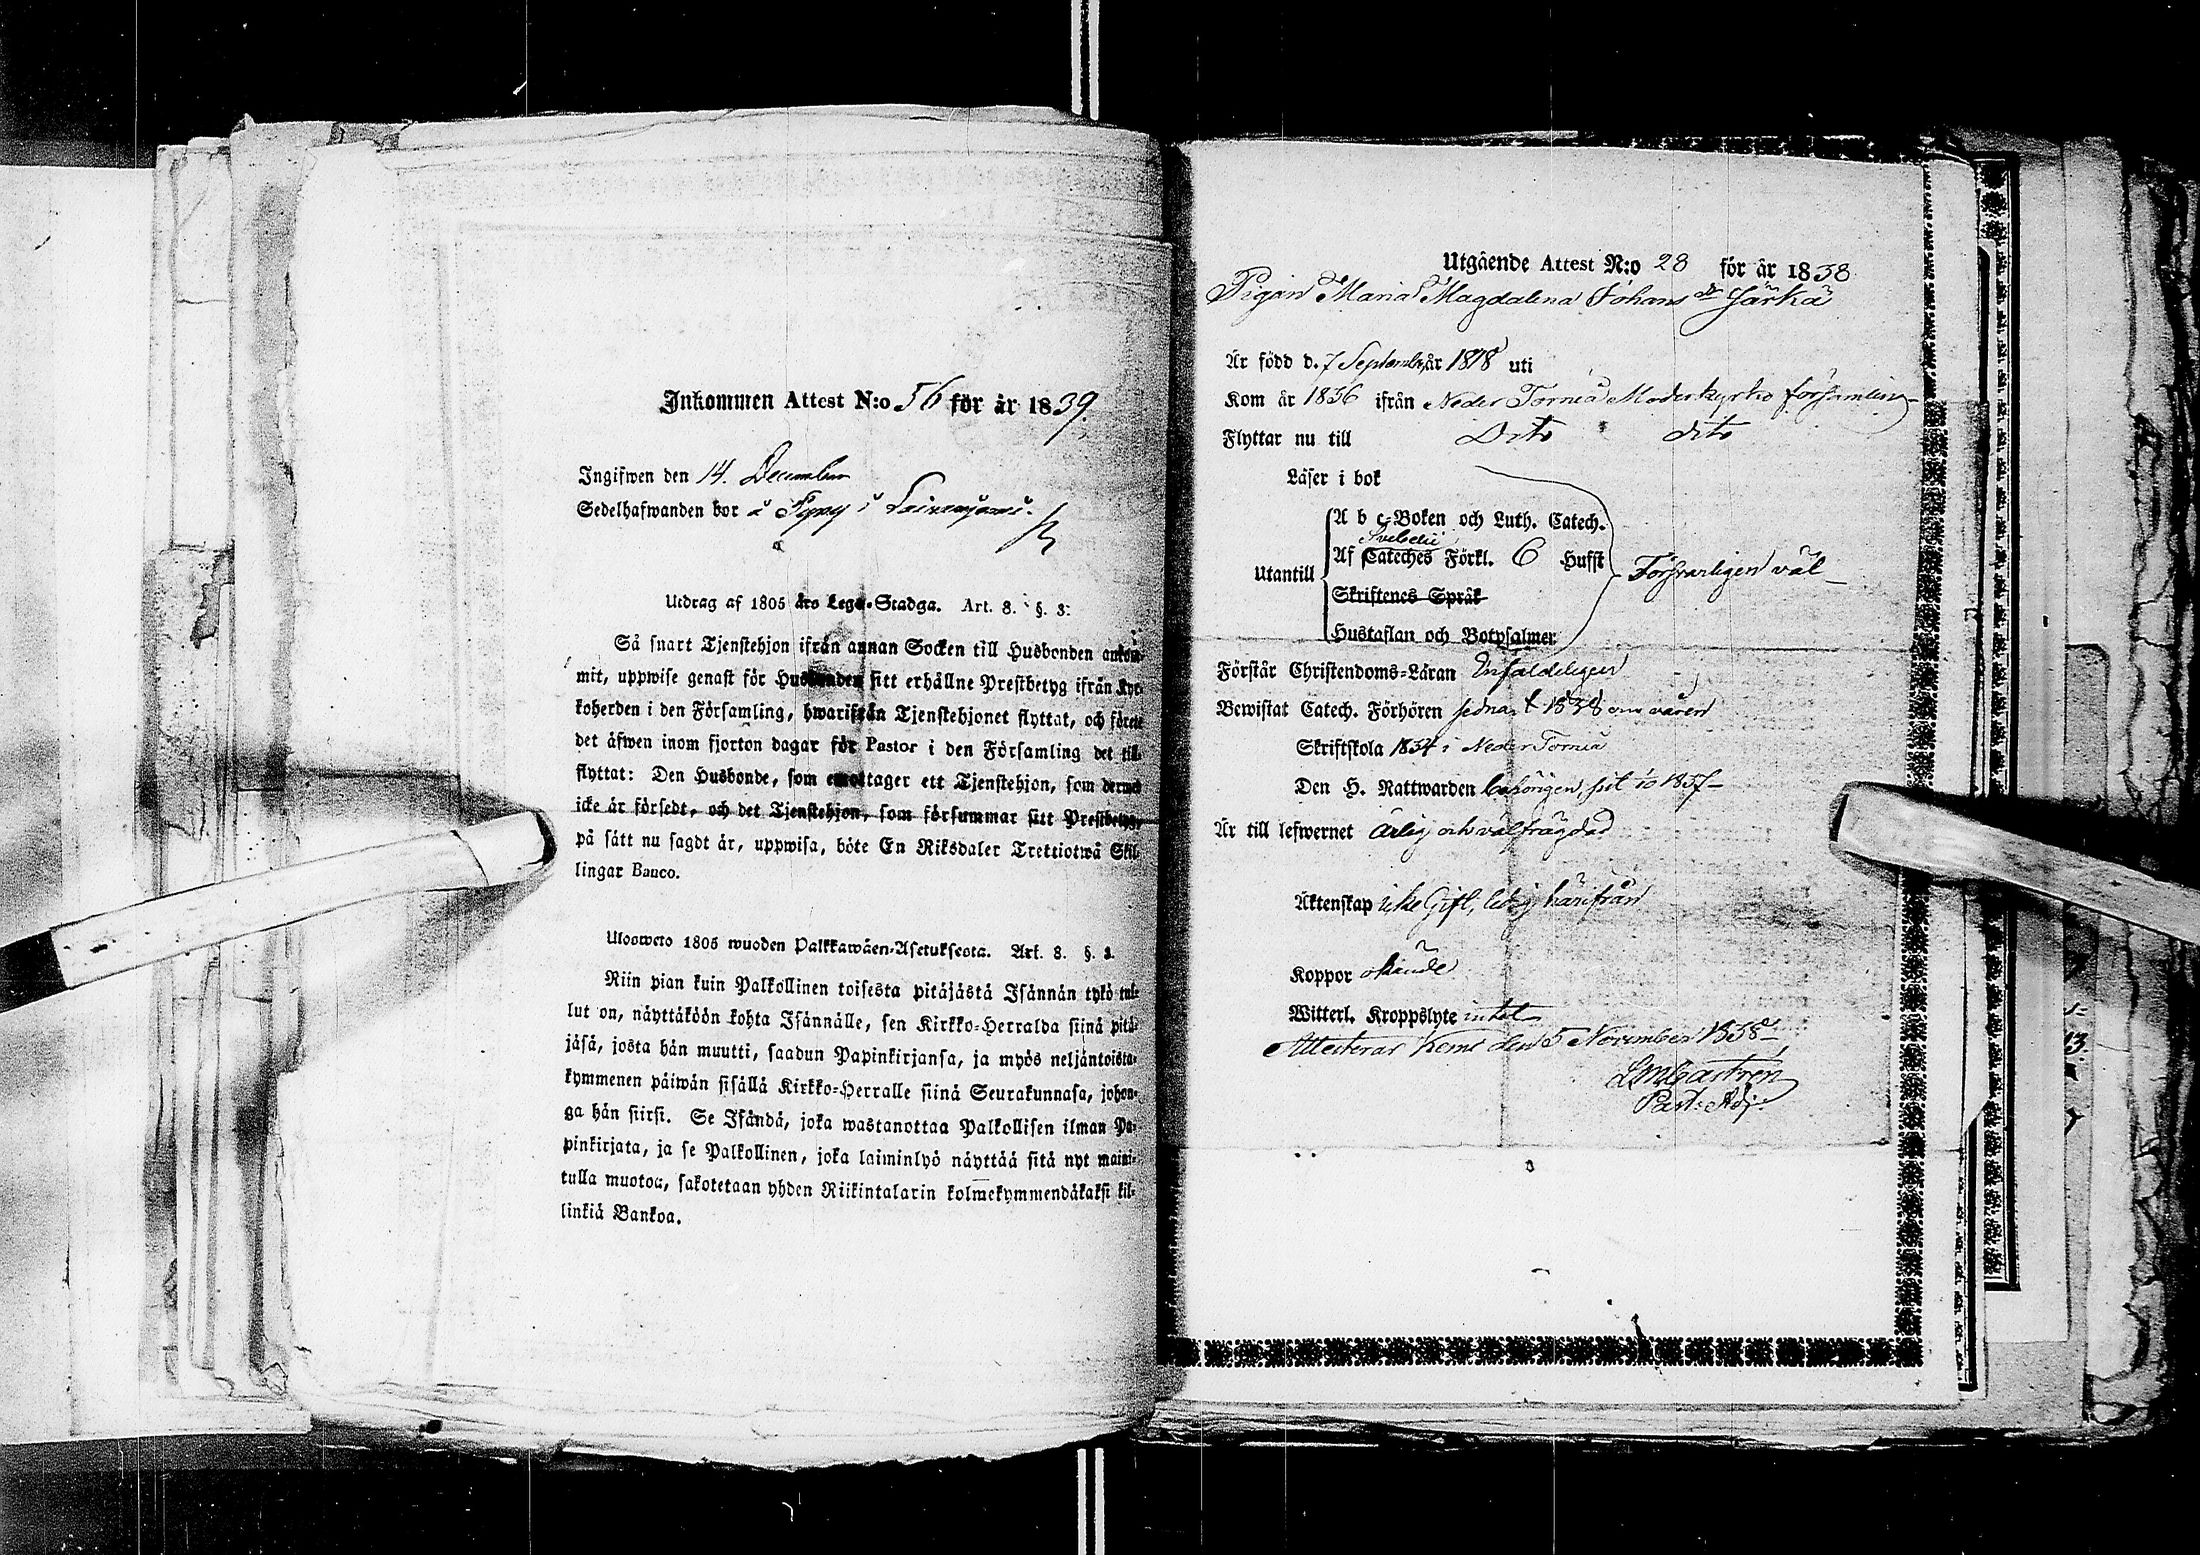 Inkommen Attest N:o 56 för år 1839.
Ingifwen den 14. December
Sedelhafwanden bor å
Utdrag af 1805 års Lego-Stadga. Art. 8. §. 3.
Så snart Tjenstehjon ifrån annan Socken till Husbonden ankom-
mit, uppwise genast för Husbonden sitt erhållne Prestbetyg ifrån Kyr-
koherden i den Församling, hwarifrån Tjenstehjonet flyttat, och förete
det äfwen inom fjorton dagar för Pastor i den Församling det till-
flyttat: Den Husbonde, som emottager ett Tjenstehjon, som dermed
icke är försedt, och det Tjenstehjon, som försummar sitt Prestbetyg,
på sätt nu sagdt är, uppwisa, böte En Riksdaler Trettiotwå Skil-
lingar Banco.
Ulosweto 1805 wuoden Palkkawäen-Asetuksesta. Art. 8. §. 3.
Niin pian kuin Palkollinen toisesta pitäjästä Isännän tykö tul-
lut on, näyttäköön kohta Isännälle, sen Kirkko-Herralda siinä pitä-
jäsä, josta hän muutti, saadun Papinkirjansa, ja myös neljäntoista-
kymmenen päiwän sisällä Kirkko-Herralle siinä Seurakunnasa, johon-
ga hän siirsi. Se Isändä, joka wastanottaa Palkollisen ilman Pa-
pinkirjata, ja se Palkollinen, joka laiminlyö näyttää sitä nyt maini-
tulla muotoa, sakotetaan yhden Riikintalarin kolmekymmendäkaksi kil-
linkiä Bankoa.
Utgående Attest N:o 28 för år 1838
Pigan Maria Magdalena Johans dr Härkä
Är född d. 7 September år 1818 uti
Kom år 1836 ifrån Neder Torneå Moderkyrko församling
Flyttar nu till Dito dito
Läser i bok
A b c-Boken och Luth. Catech.
Svebelii
Utantill Af Cateches Förkl. 6 Hufst Försvarligen väl
Skriftenes Språk
Hustaflan och Botpsalmer
Förstår Christendoms-Läran Enfaldeligen
Bewistat Catech. Förhören sednast 1838 om våren
Skriftskola 1834 i Neder Torneå
Den H. Nattwarden behörigen, 1837
Är till lefwernet ärlig och välfrägdad
Äktenskap icke Gift, ledig härifrån
Koppor okände
Witterl. Kroppslyte intet
Attesterar Kemi den 5 November 1838
Castrén
Past: Adj: